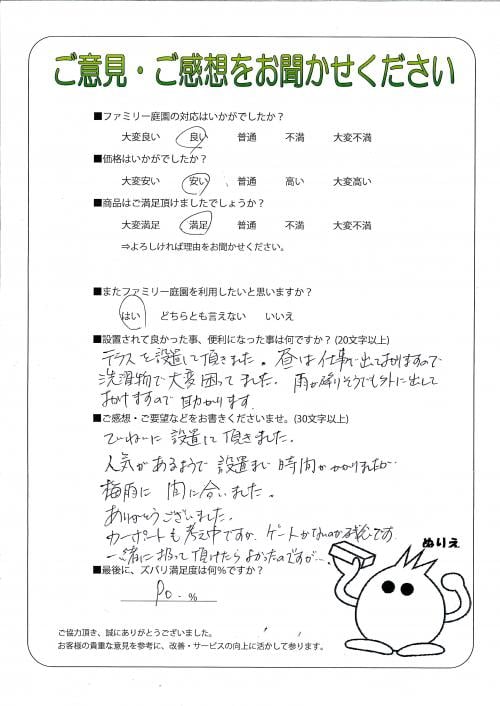 ご意見・ご感想をお聞かせください
■ファミリー庭園の対応はいかがでしたか？
大変良い 良い 普通 不満 大変不満
■価格はいかがでしたか？
大変安い 安い 普通 高い 大変高い
■商品はご満足頂けましたでしょうか？
大変満足 満足 普通 不満 大変不満
⇒よろしければ理由をお聞かせください。
■またファミリー庭園を利用したいと思いますか？
はい どちらとも言えない いいえ
■設置されて良かった事、便利になった事は何ですか？(20文字以上)
テラスを設置して頂きました。昼は仕事で出ておりますので
洗濯物で大変困ってました。雨が降りそうでも外に出して
おけますので助かります
■ご感想・ご要望などをお書きくださいませ。(30文字以上)
ていねいに設置して頂きました。
人気があるようで設置まで時間がかかりましたが
梅雨に間に合いました。
ありがとうございました。
カーポートも考え中ですが、ゲートがないのが残念です
一緒に扱って頂けたらよかったのですが…。
ぬりえ
■最後に、ズバリ満足度は何％ですか？
90 %
ご協力頂き、誠にありがとうございました。
お客様の貴重な意見を参考に、改善・サービスの向上に活かして参ります。